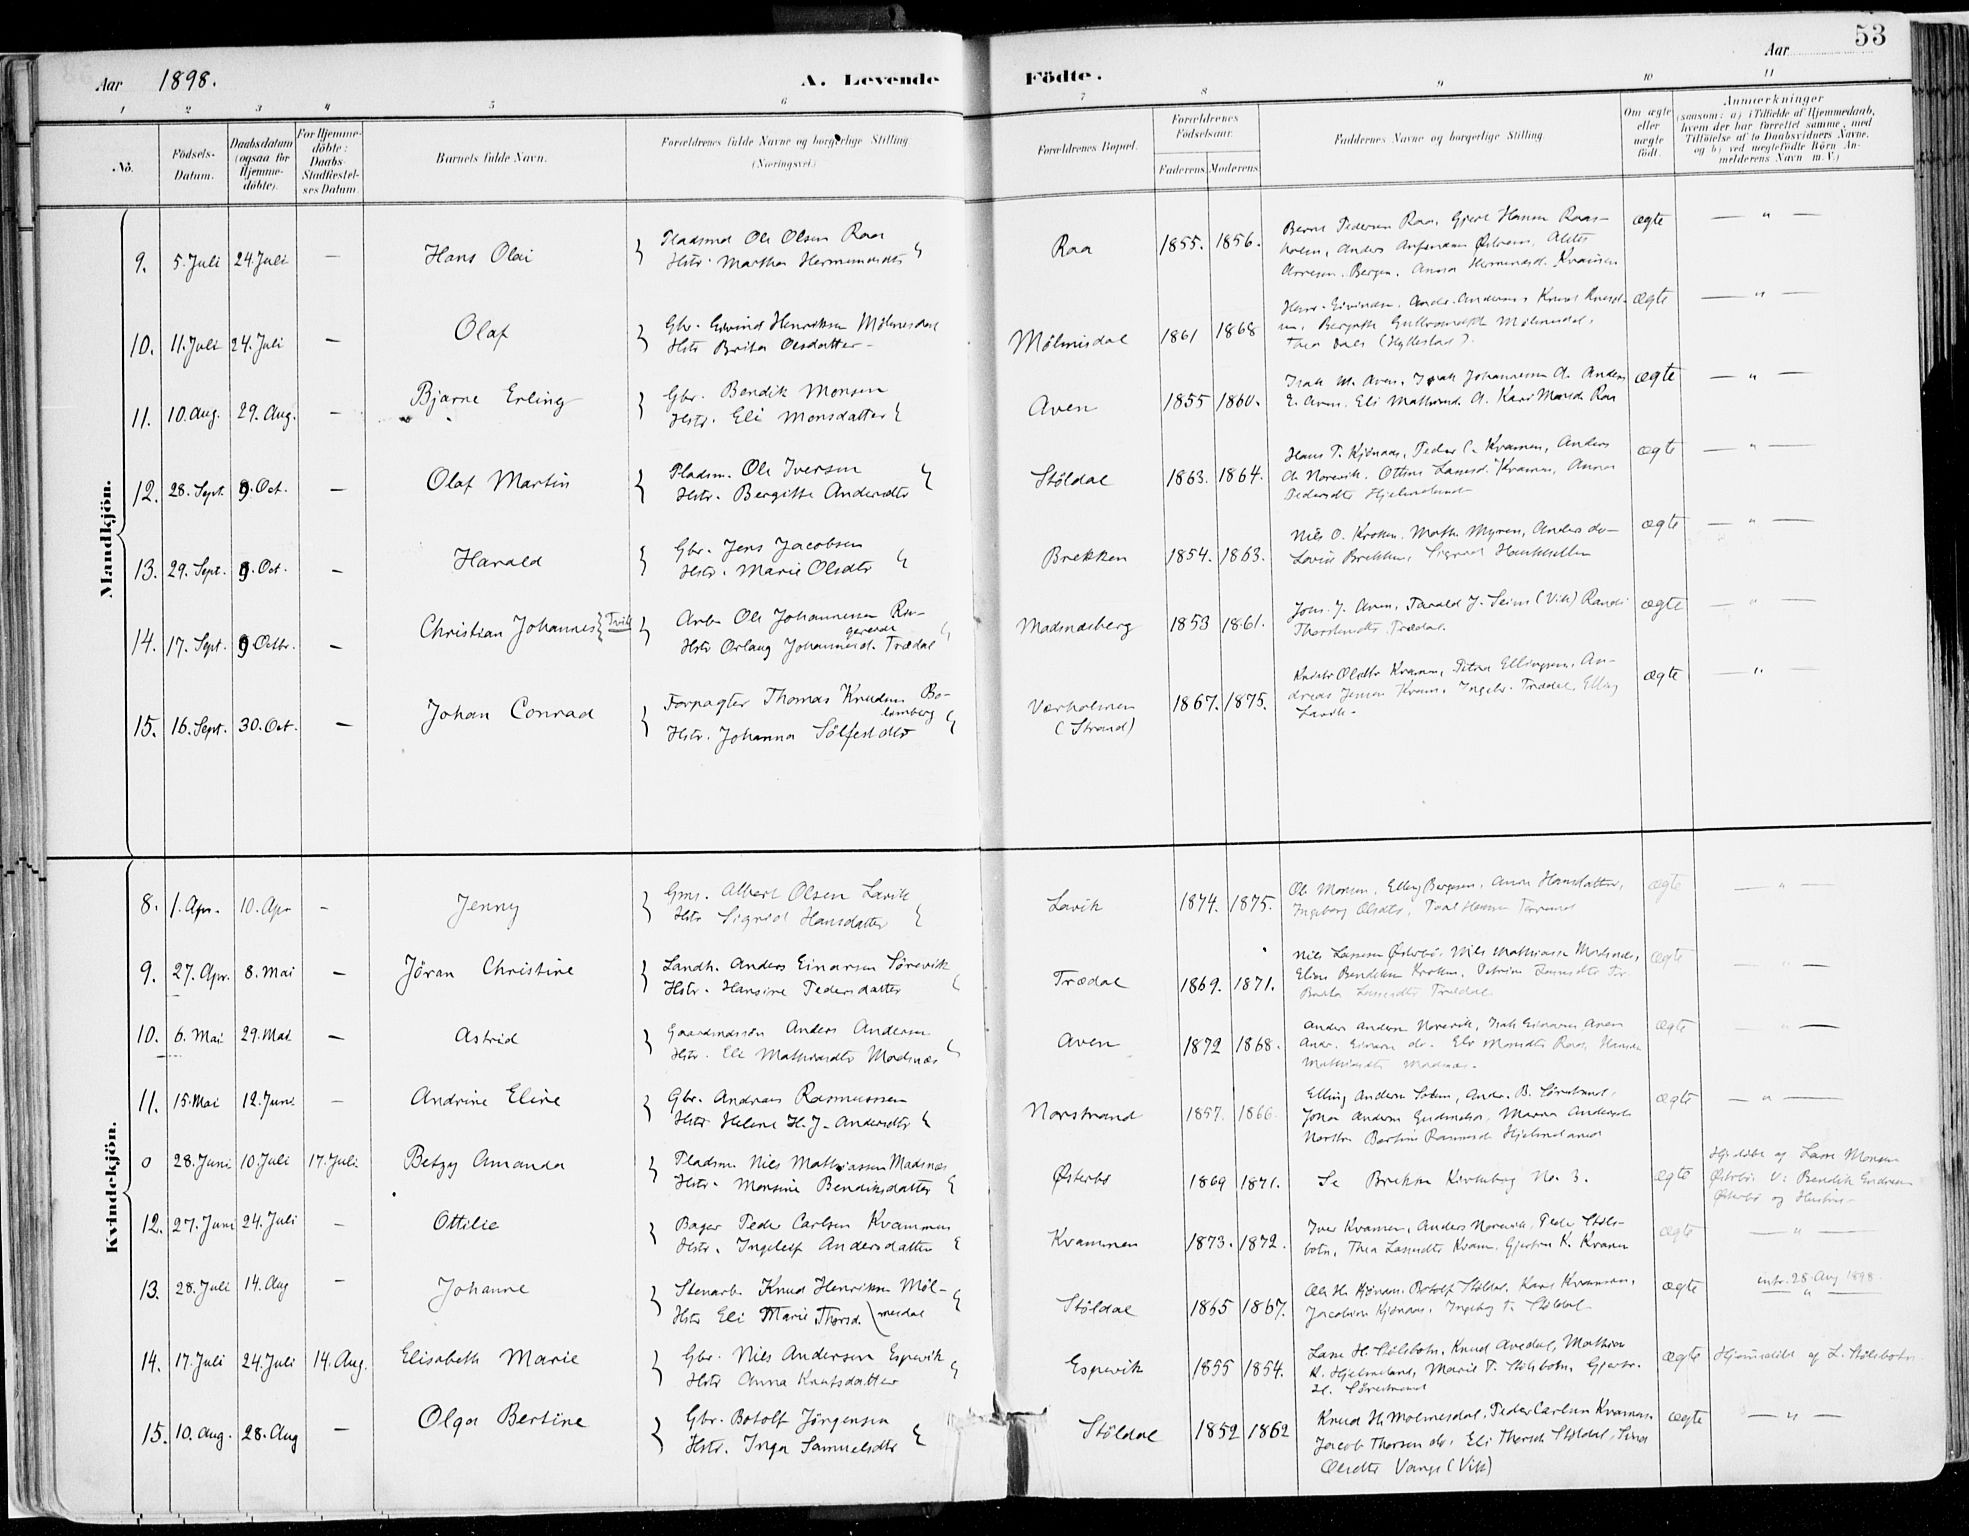 Aar 1898.
A. Levende Födte.
Aar
53
1 2 3 4 5 6 7 8 9 10 11
No.
Födsels-Datum.
Daabsdatum (ogsaa for Hjemme-döbte).
For Hjemme-döbte: Daabs-Stadfæstel-ses Datum
Barnets fulde Navn.
Forældrenes fulde Navne og borgerlige Stilling (Næringsvei)
Forældrenes Bopæl.
Forældrenes Födselsaar.
Faderens Moderens
Faddernes Navne og borgerlige Stilling
Om ægte eller uægte födt.
Anmærkninger
(saasom: a) i Tilfælde af Hjemmedaab,
hvem der har forrettet samme, med
Tilföielse af to Daabsvidners Navne,
og b) ved uægtefödte Börn An-
melderens Navn m. V.)
Mandkjön.
9. 5. Juli 24. Juli — Hans Olai
Pladsmd Ole Olsen Raa
Hstr. Martha Hermundsdtr
Raa 1855. 1856.
Bernt Pedersen Raa, Gjert Hansen Raas-
holm, Anders
Bergen, Anna Kramen
ægte — " —
10. 11. Juli 24. Juli — Olaf
Gbr. Eivind Henriksen Mölmesdal
Hstr Brita Olsdatter
Mölmisdal 1861 1868
Henr. Eivindsen, Andr. Andersen, Knud
Mölmesdal,
Thea Dals (Hyllestad).
ægte — " —
11. 10. Aug. 29. Aug. — Bjarne Erling
Gbr. Bendik Monsen
Hstr. Eli Monsdatter
Aven 1855 1860.
Isak M. Aven, Isak Johannessen A. Anders
E. Aven. Eli A. Kari Monsd. Raa
ægte — " —
12. 28. Sept. 9. Oct. — Olaf Martin
Pladsm. Ole Iversen
Hstr. Bergitte Andersdtr
Stöldal 1863. 1864.
Hans P. Kjönaas, Peder C. Kramen, Anders
A. Norevik. Ottine Lassesd. Kramen, Anna
Pedersdtr Hjelmeland
ægte — " —
13. 29. Sept. 9. Oct. — Harald
Gbr. Jens Jacobsen
Hstr. Marie Olsdtr
Brekken 1854. 1863.
Nils O. Kroken. Math. Myren, Anders do-
Lovise Brekken, Sigrid
ægte — " —
14. 17. Sept. 9 Octbr. — Christian Johannes Tvill
Arb. Ole Johannessen
Hstr Orlaug Johannesd. Trædal
Madsnæsberg 1853 1861.
Johs. J. Aven, Tarald J. Seim (Vik) Randi
Thorsteinsdtr Trædal.
ægte — " —
15. 16. Sept. 30. Oct. — Johan Conrad
Forpagter Thomas Knudsen Bo-
limberg
Hstr. Johanna Sölfestdtr
Værholmen 1867. 1875.
(Strand)
Olsdtr Kramen, Petra Ellingsen, An-
dreas Jensen Kram., Ingebr. Trædal, Elling
Lavik.
ægte " —
Kvindekjön.
8. 1. Apr. 10. Apr – Jenny
Gms. Albert Olsen Lavik
Hstr Sigrid Hansdatter
Lavik 1874. 1875.
Ole Monsen, Elling Bergesen, Anna Hansdatter,
Ingeborg Olsdtr, Paul Hansen
ægte — " —
9. 27. Apr. 8. Mai — Jöran Christine
Landh. Anders Einarsen Sörevik
Hstr. Hansine Pedersdatter
Trædal 1869. 1871.
Nils Lassesen Österbö, Nils Mathiassen Madsnæs,
Elias Bendiksen Kroken, Petrine
Brita Lassesdtr Trædal
ægte — " —
10. 6. Mai 29. Mai — Astrid
Gaardmdssön Anders Andersen
Hstr. Eli Mathiasdtr Madsnæs
Aven 1872 1868.
Anders Andersen Norevik, Isak Einarsen Aven
Andr. Einarsen do. Eli Monsdtr Raa, Hansine
Mathiasdtr Madsnæs.
ægte — " —
11. 15. Mai 12. Juni — Andrine Eline
Gbr. Andreas Rasmussen
Hstr Helene H. J. Andersdtr
Norstrand 1857. 1866.
Elling Andersen Andr. B. Sörestrand,
Johan Andersen Marna Andersd.
Bertine Rasmusd. Hjelmeland
ægte — " —
0 28. Juni 10. Juli 17. Juli Betzy Amanda
Pladsm. Nils Mathiassen Madsnæs
Hstr. Monsine Bendiksdatter
Österbö 1869 1871.
Se Brekke Kirkebog No. 3.
ægte
Hj.döbt af Lasse Monsen
Österbö. V: Bendik Endresen
Österbö og Hustru
12. 27. Juni 24. Juli — Ottilie
Bager Peder Carlsen Kvammen
Hstr. Ingeleif Andersdatter
Kvammen 1873. 1872.
Iver Kvamen, Anders Norevik, Peder Stöls-
botn, Thea Lassesdtr Kvam. Gjertru K. Kvam
ægte — " —
13. 28. Juli 14. Aug — Johanne
Stenarb. Knud Henriksen Möl-
Hstr Eli Marie Thorsd. mesdal
Stöldal 1865 1867.
Ole H. Kjönaas, Botolf Stöldal, Kari Kvamen,
Jacobine Kjönaas, Ingeborg T. Stöldal
ægte
intr. 28. Aug 1898.
— " —
14. 17. Juli 24. Juli 14. Aug. Elisabeth Marie
Gbr. Nils Andersen Espevik
Hstr Anna Knutsdatter
Espevik 1855 1854.
Lasse H. Stölsbotn, Knud Avedal, Mathias
K. Hjelmeland, Marie T. Stölsbotn, Gjertr.
H. Sörestrand
ægte Hjemmedöbt af L. Stölsbotn
15. 10. Aug. 28. Aug — Olga Bertine
Gbr. Botolf Jörgensen
Hstr. Inga Samuelsdtr
Stöldal 1852 1862
Knud H. Mölmesdal, Peder Carlsen Kvamen,
Jacob Thorsen do, Eli Thorsd. Stöldal,
Olsdtr Vange (Vik)
ægte — " —